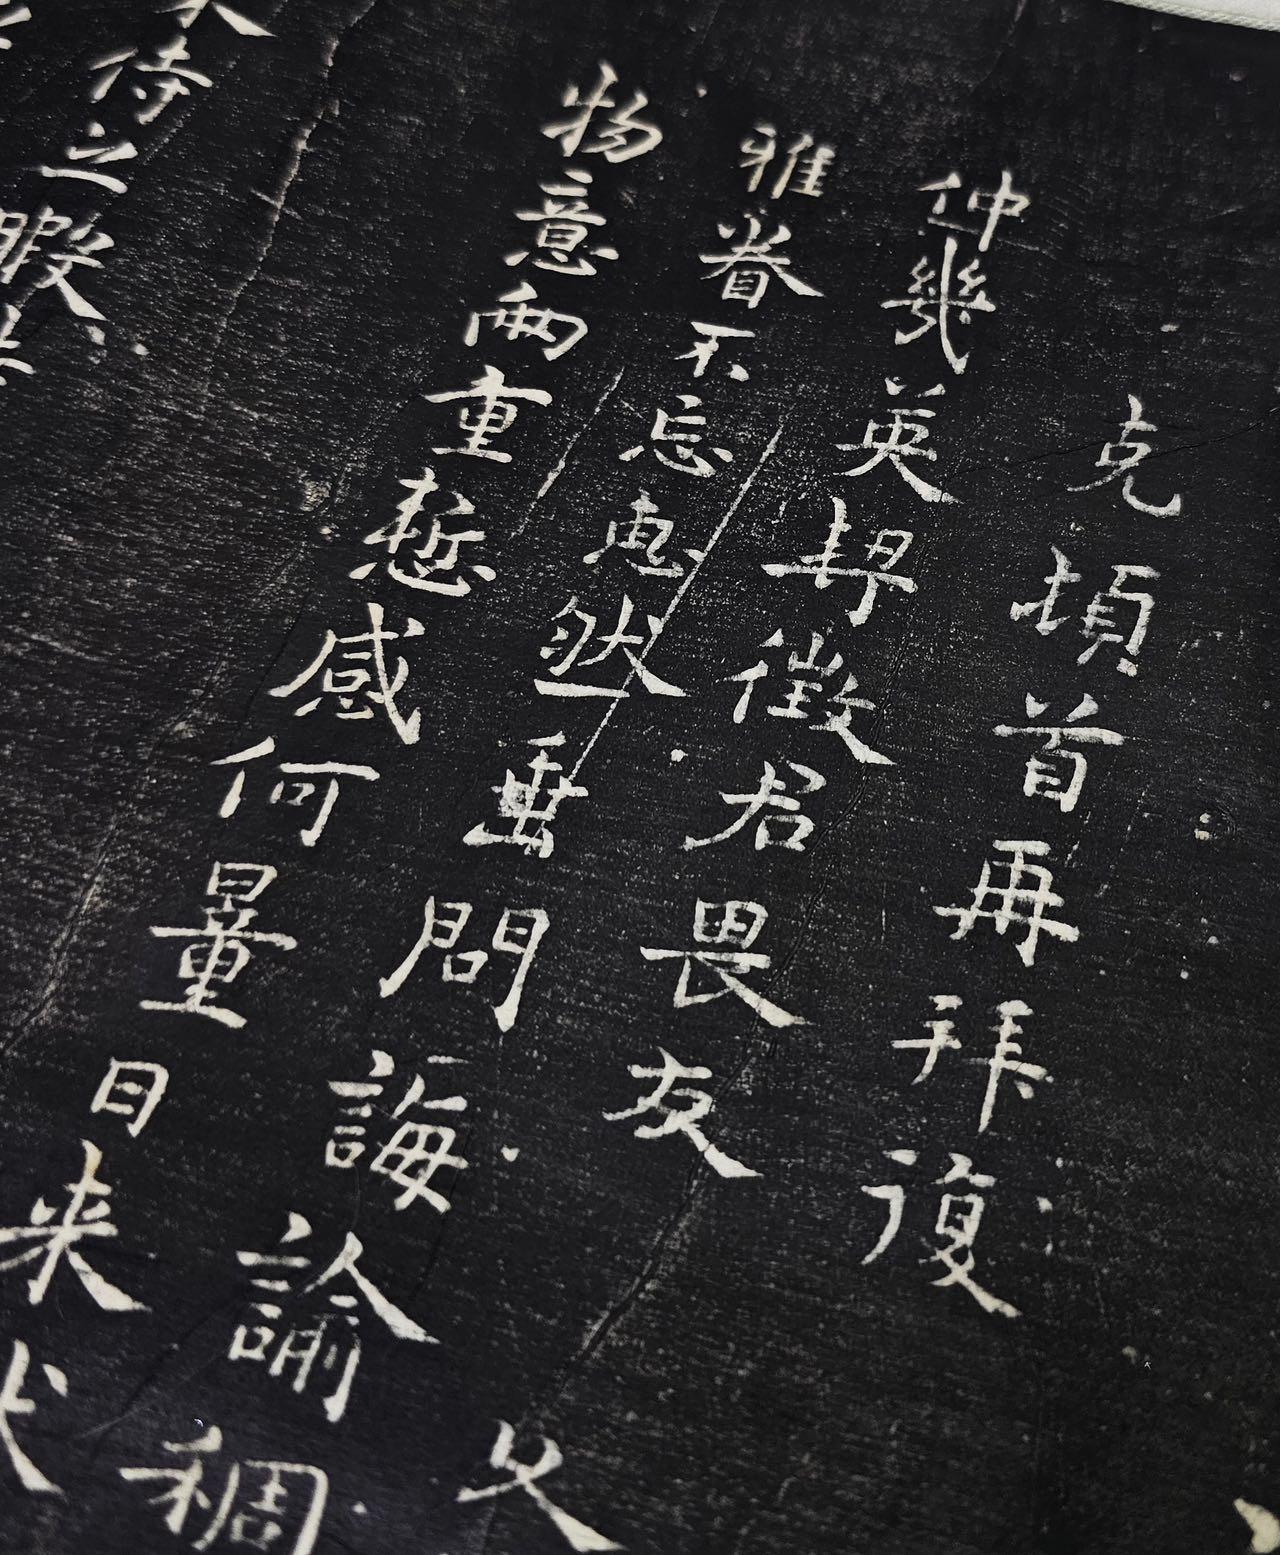 克頓首再拜復
仲幾英契徵君畏友久
雅眷不忘惠然垂問誨諭稠
物意兩重慙感何量日来
侍之暇